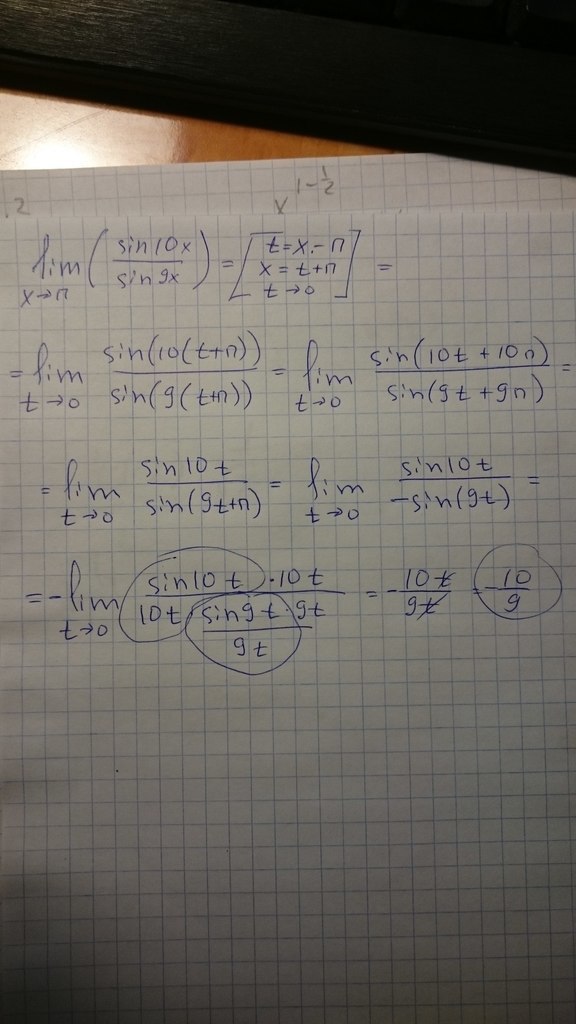 2 x^{1-\frac{1}{2}}
\lim_{x→π} (\frac{sin10x}{sin9x}) = [t=x-π x=t+π t→0] =
= \lim_{t→0} \frac{sin(10(t+π))}{sin(9(t+π))} = \lim_{t→0} \frac{sin(10t+10π)}{sin(9t+9π)} =
= \lim_{t→0} \frac{sin10t}{sin(9t+π)} = \lim_{t→0} \frac{sin10t}{-sin(9t)} =
= -\lim_{t→0} \frac{sin10t·10t}{10t·\frac{sin9t·9t}{9t}} = -\frac{10t}{9t} = -\frac{10}{9}